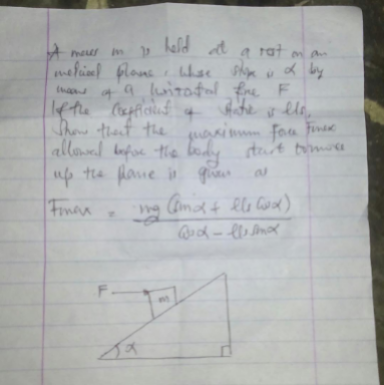 A mass m is held at a rest on an
inclined plane. whose slope is α by
means of a horizontal force F
If the Coefficient of static is Us.
Show that the maximum force Fmax
allowed before the body start to move
up the plane is given as
Fmax = mg (Sinα + Us Cosα)
Cosα - Us Sinα
F
m
α